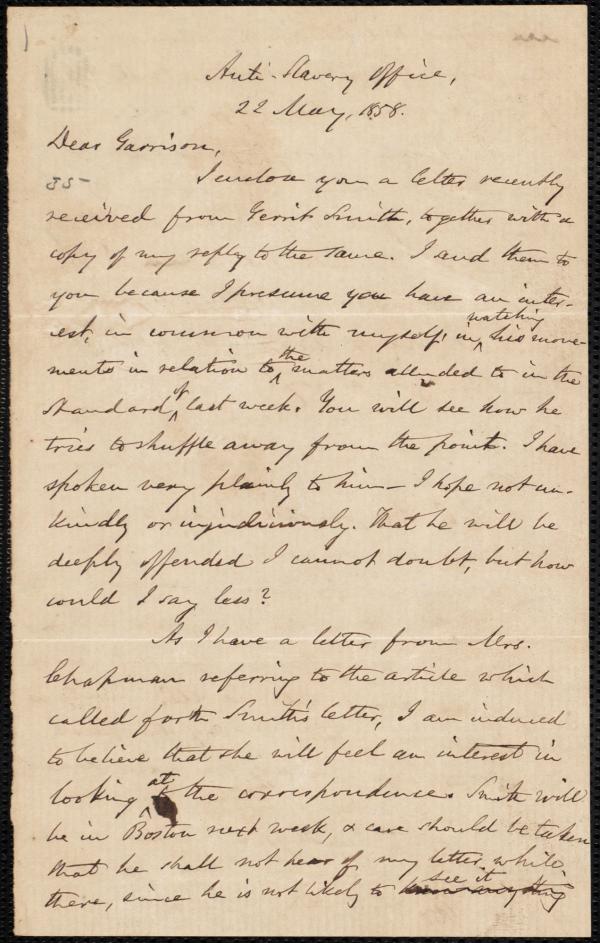 Anti-Slavery Office,
22 May, 1858.
Dear Garrison,
I enclose you a letter recently
received from Gerrit Smith, together with a
copy of my reply to the same. I send them to
you because I presume you have an inter-
est, in common with myself, in watching his move-
ments in relation to the matters alluded to in the
Standard of last week. You will see how he
tries to shuffle away from the point. I have
spoken very plainly to him — I hope not un-
kindly or injudiciously. That he will be
deeply offended I cannot doubt, but how
could I say less?
As I have a letter from Mrs.
Chapman referring to the article which
called forth Smith's letter, I am induced
to believe that she will feel an interest in
looking at the correspondence. Smith will
be in Boston next week, & care should be taken
that he shall not hear of my letter while
there, since he is not likely to know anything see it